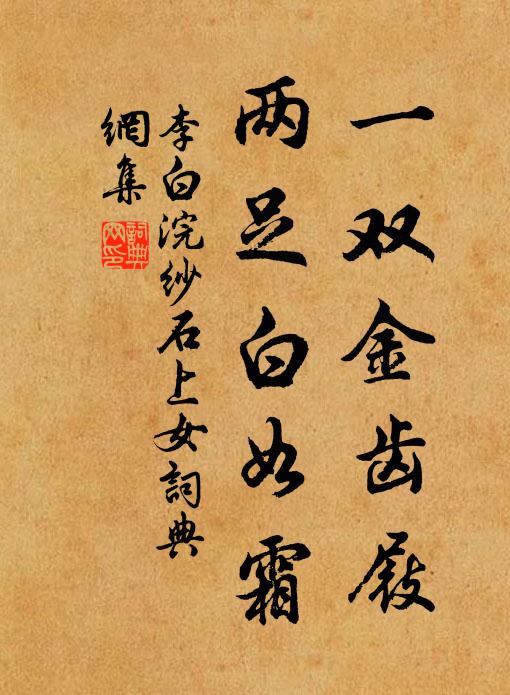 一双金齿屐
两足白如霜
李白浣紗石上女詞典
網集
詞典
网印